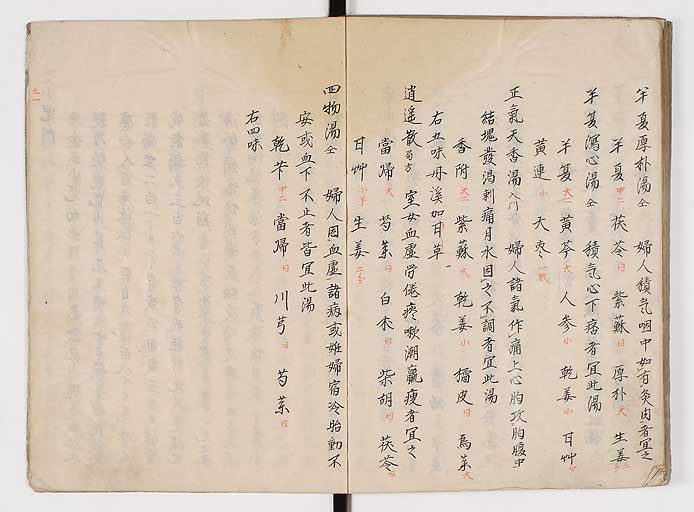 半夏厚朴湯仝 婦人積気咽中如有炙肉者宜之
半夏中二 茯苓同 紫蘇同 厚朴大 生姜二分
半夏瀉心湯仝 積気心下痞者宜此湯
半夏大二 黄芩大 人参小 乾姜小 甘艸少
黄連小 大枣一戋
正氣天香湯入門 婦人諸氣作痛上心胸攻胸腹中
結塊發渇刺痛月水因之不調者宜此湯
香附大二 紫蘇大 乾姜小 橘皮同 烏薬大
右五味丹溪加甘草
逍遥散局方 室女血虚労倦疼嗽潮羸痩者宜之
當歸大 芍薬同 白朮同 柴胡同 茯苓同
甘艸少半 生姜二分
四物湯仝 婦人因血虚諸病或妊婦宿冷胎動不
安或血下不止者皆宜此湯
乾芐中二 當歸同 川芎同 芍薬同
右四味
九一